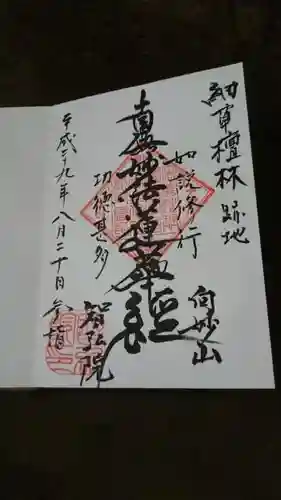 細草檀林跡地
如説修行
向妙山
南無妙法蓮華経
功徳甚多
智弘院
平成二九年八月二十日参詣